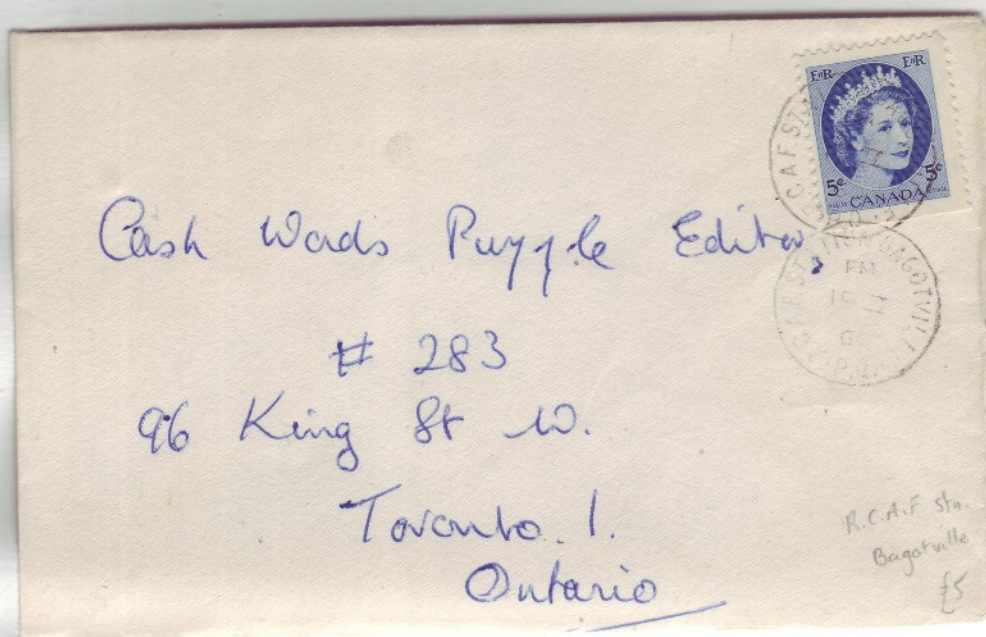 EIIR EIIR
5¢ 5¢
CANADA
R.C.A.F. STATION BAGOTVILLE
PM
P.Q.
Cash Words Puzzle Editor,
# 283
96 King St W.
Toronto. 1.
Ontario
R.C.A.F Stn.
Bagotville
£5